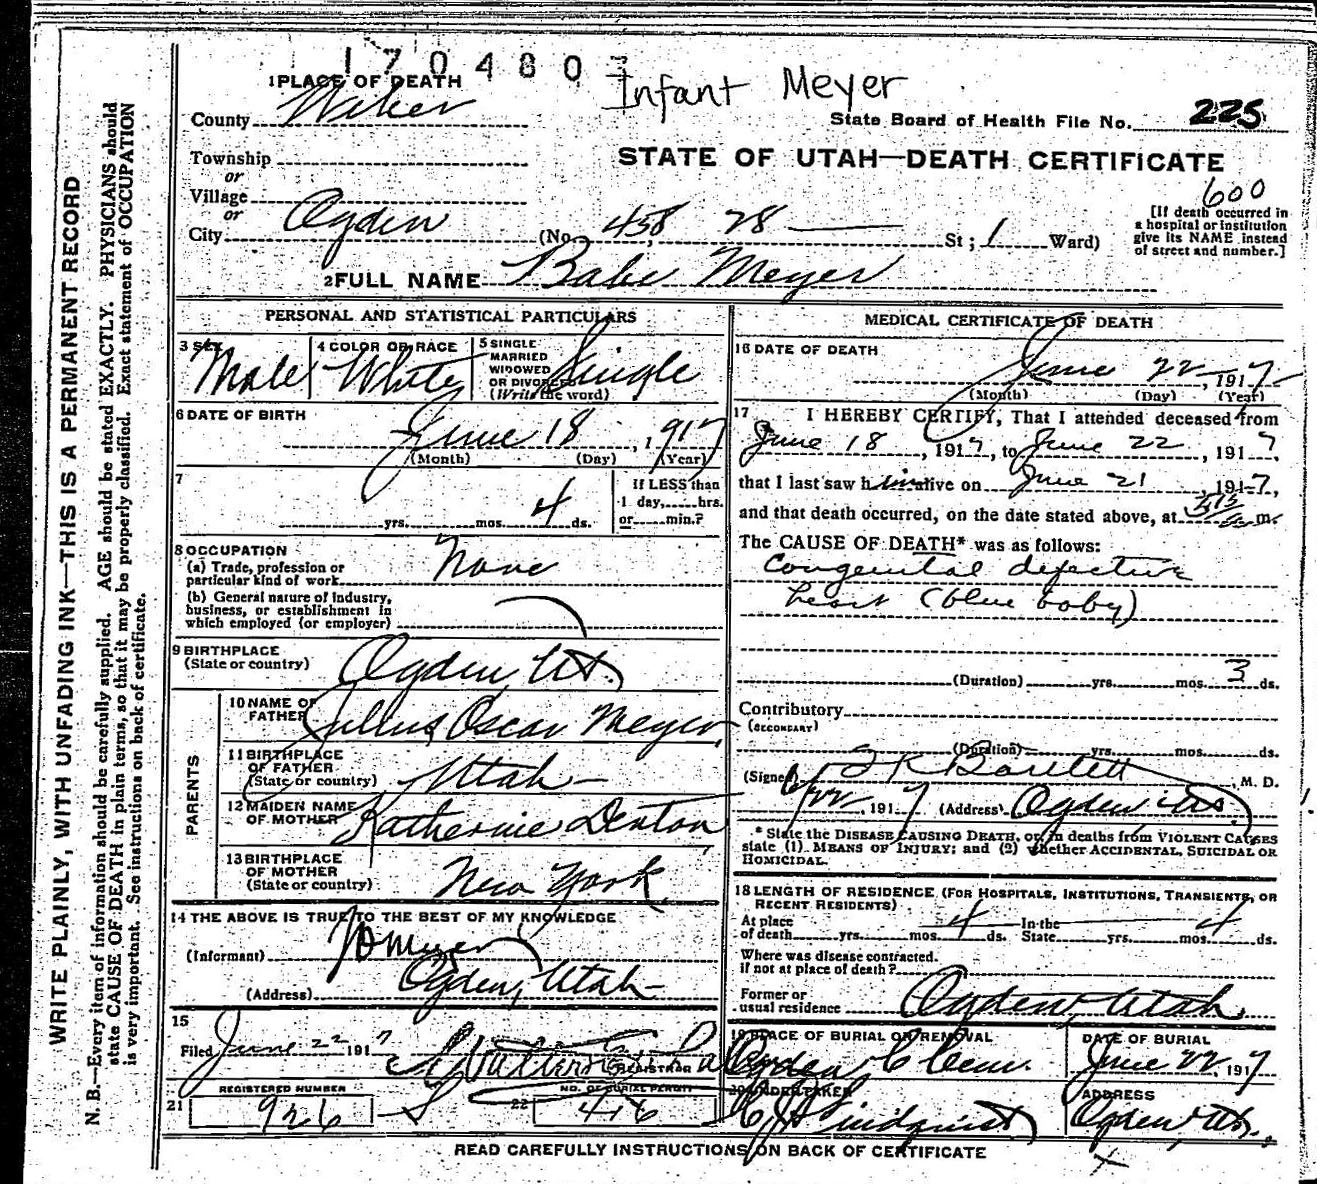 1 7 0 4 8 0
Infant Meyer
1 PLACE OF DEATH
County Weber
State Board of Health File No. 225
Township
or
STATE OF UTAH—DEATH CERTIFICATE
Village
or
600
City Ogden (No. 458 28 St; 1 Ward)
[If death occurred in
a hospital or institution
give its NAME instead
of street and number.]
2 FULL NAME Babe Meyer
PERSONAL AND STATISTICAL PARTICULARS
3 SEX Male
4 COLOR OR RACE White
5 SINGLE
MARRIED
WIDOWED
OR DIVORCED
(Write the word) Single
6 DATE OF BIRTH
June 18, 1917
(Month) (Day) (Year)
7
yrs. mos. 4 ds.
If LESS than
1 day, hrs.
or min.?
8 OCCUPATION
(a) Trade, profession or
particular kind of work None
(b) General nature of industry,
business, or establishment in
which employed (or employer)
9 BIRTHPLACE
(State or country) Ogden Ut.
PARENTS
10 NAME OF
FATHER Julius Oscar Meyer
11 BIRTHPLACE
OF FATHER
(State or country) Utah
12 MAIDEN NAME
OF MOTHER Katherine Denton
13 BIRTHPLACE
OF MOTHER
(State or country) New York
14 THE ABOVE IS TRUE TO THE BEST OF MY KNOWLEDGE
(Informant) JO Meyer
(Address) Ogden, Utah
15
Filed June 22 1917
REGISTRAR
REGISTERED NUMBER
21 926
NO. OF BURIAL PERMIT
22 416
MEDICAL CERTIFICATE OF DEATH
16 DATE OF DEATH
June 22, 1917
(Month) (Day) (Year)
17 I HEREBY CERTIFY, That I attended deceased from
June 18, 1917, to June 22, 1917,
that I last saw him alive on June 21, 1917,
and that death occurred, on the date stated above, at m.
The CAUSE OF DEATH* was as follows:
Congenital defective
heart (blue baby)
(Duration) yrs. mos. 3 ds.
Contributory
(SECONDARY)
(Duration) yrs. mos. ds.
(Signed) Bartlett, M. D.
6/22, 1917 (Address) Ogden Ut.
* State the DISEASE CAUSING DEATH, or, in deaths from VIOLENT CAUSES
state (1) MEANS OF INJURY; and (2) whether ACCIDENTAL, SUICIDAL OR
HOMICIDAL.
18 LENGTH OF RESIDENCE (FOR HOSPITALS, INSTITUTIONS, TRANSIENTS, OR
RECENT RESIDENTS)
At place
of death yrs. mos. 4 ds. In the
State yrs. mos. 4 ds.
Where was disease contracted.
if not at place of death?
Former or
usual residence Ogden, Utah
19 PLACE OF BURIAL OR REMOVAL
Ogden C Cem.
DATE OF BURIAL
June 22, 1917
20 UNDERTAKER
Lindquist
ADDRESS
Ogden, Ut.
READ CAREFULLY INSTRUCTIONS ON BACK OF CERTIFICATE
WRITE PLAINLY, WITH UNFADING INK—THIS IS A PERMANENT RECORD
N. B.—Every item of information should be carefully supplied. AGE should be stated EXACTLY. PHYSICIANS should
state CAUSE OF DEATH in plain terms, so that it may be properly classified. Exact statement of OCCUPATION
is very important. See instructions on back of certificate.